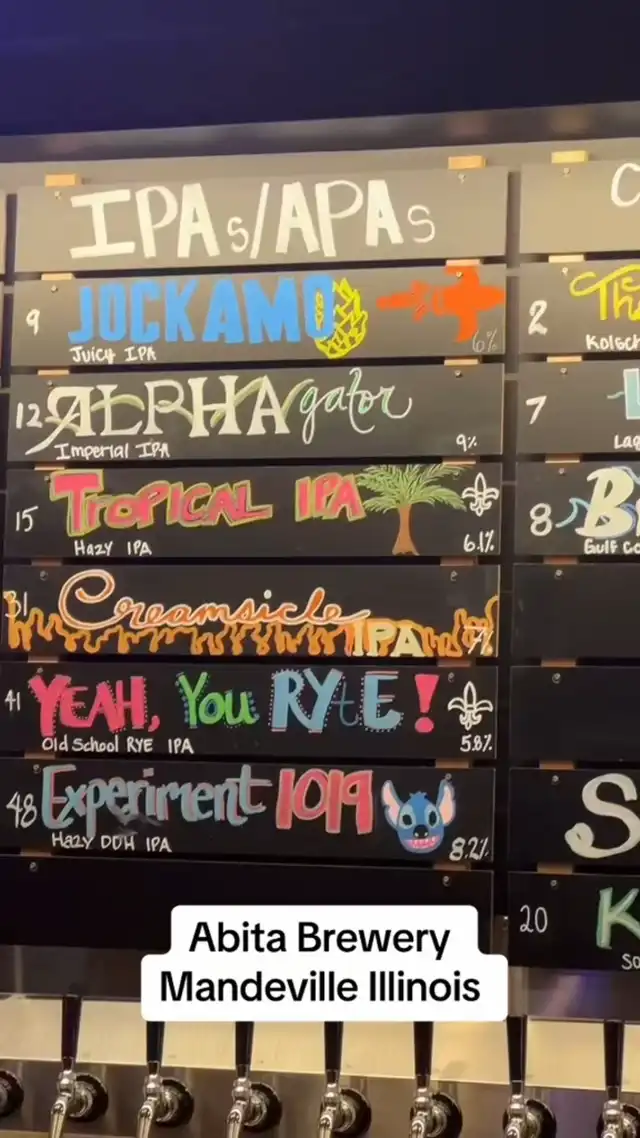 IPAs/APAs
9 JOCKAMO
Juicy IPA
6%
12 ALPHAgator
Imperial IPA
9%
15 TROPICAL IPA
Hazy IPA
6.1%
Creamsicle
IPA
7%
41 YEAH, You RYtE!
Old School RYE IPA
5.8%
48 Experiment 1019
Hazy DDH IPA
8.2%
2
7
8
Gulf
20
K
Abita Brewery
Mandeville Illinois